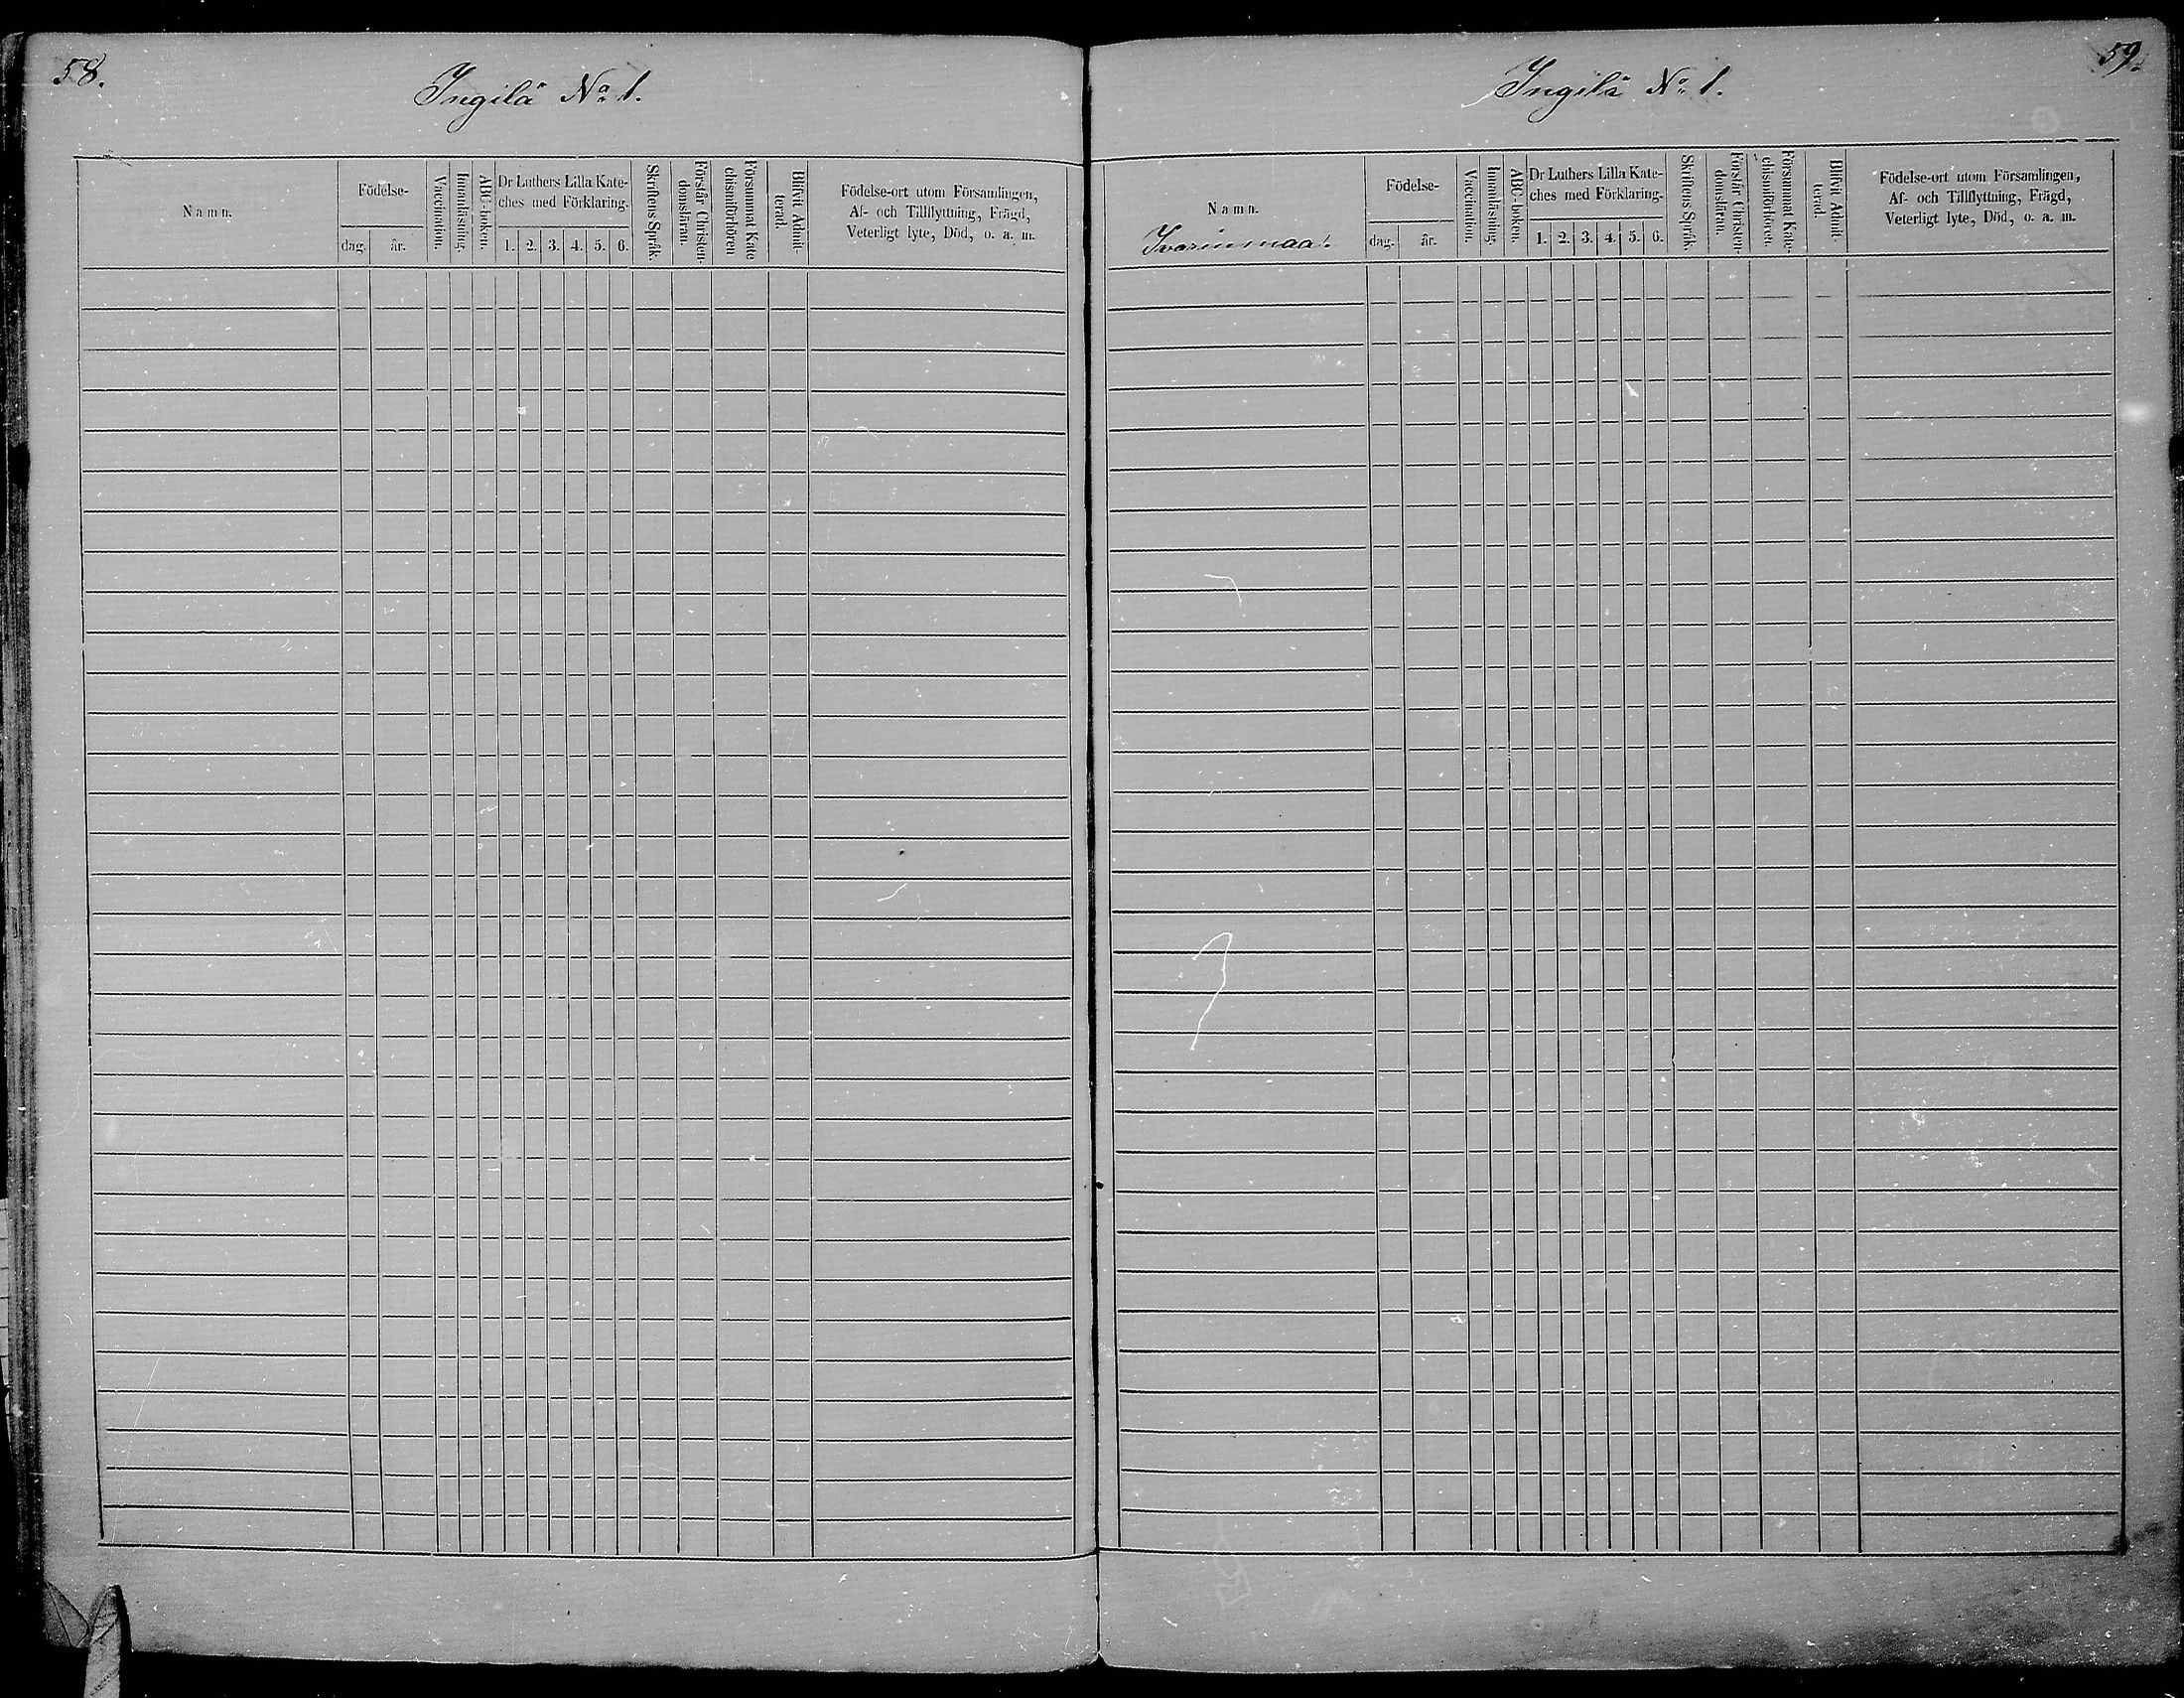 58.
Ingilä No 1.
Namn.
Födelse-
dag.
år.
Vaccination.
Innanläsning.
ABC-boken.
Dr Luthers Lilla Kate-
ches med Förklaring.
1. 2. 3. 4. 5. 6.
Skriftens Språk.
Förstår Christen-
domsläran.
Försummat Kate
chismiförhören
Blifvit Admit-
terad.
Födelse-ort utom Församlingen,
Af- och Tillflyttning, Frägd,
Veterligt lyte, Död, o. a. m.
59.
Ingilä No 1.
Namn.
Ivarinmaa.
Födelse-
dag.
år.
Vaccination.
Innanläsning.
ABC-boken.
Dr Luthers Lilla Kate-
ches med Förklaring.
1. 2. 3. 4. 5. 6.
Skriftens Språk.
Förstår Christen-
domsläran.
Försummat Kate-
chismiförhören.
Blifvit Admit-
terad.
Födelse-ort utom Församlingen,
Af- och Tillflyttning, Frägd,
Veterligt lyte, Död, o. a. m.